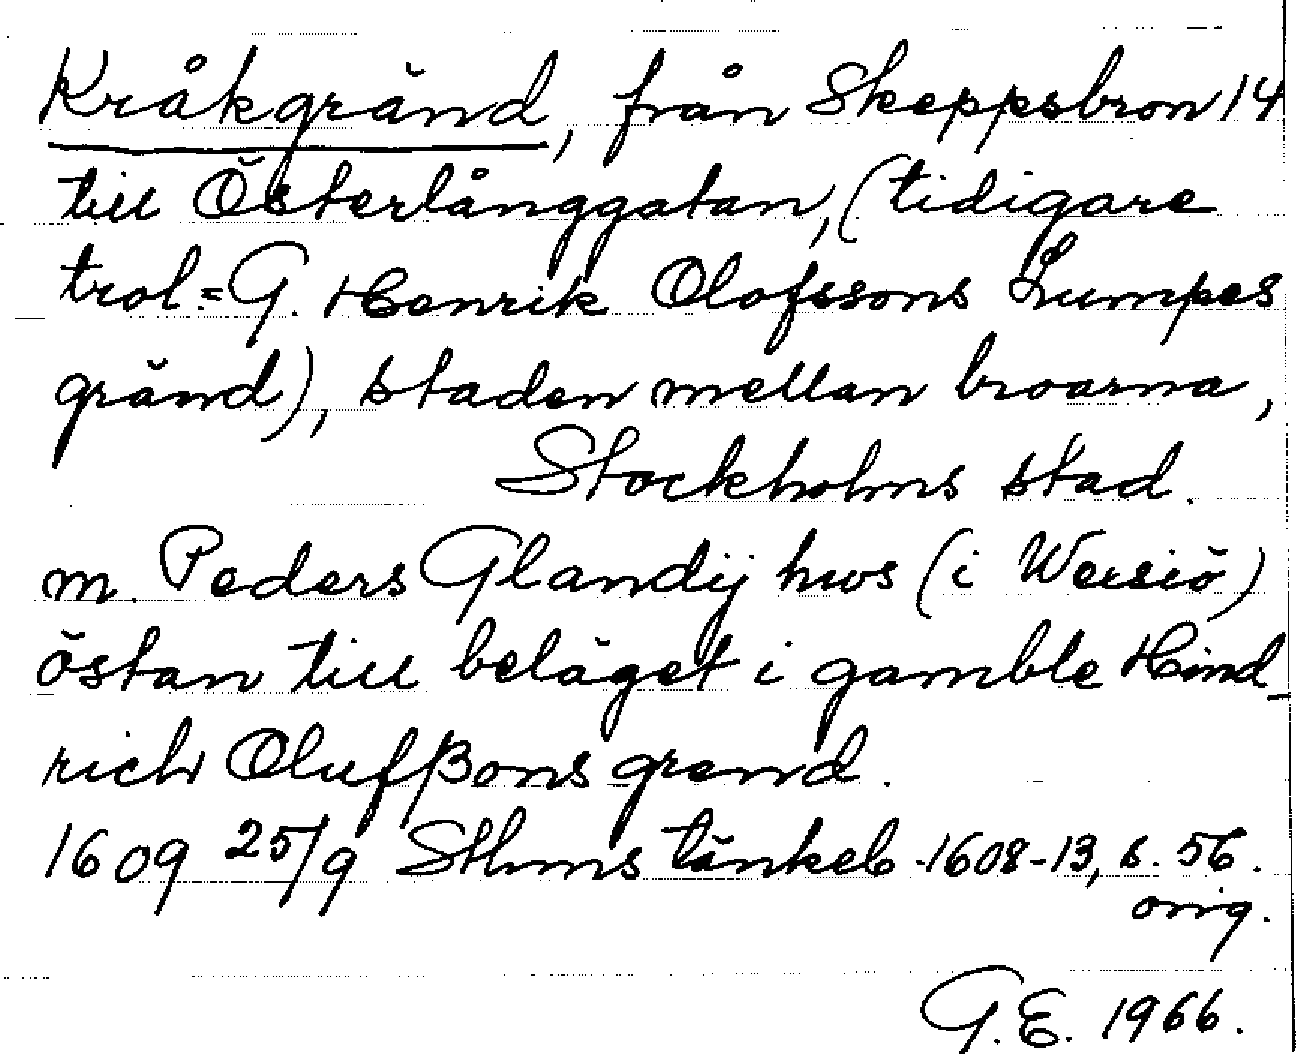 Kråkgränd, från Skeppsbron 14
till Österlånggatan, (tidigare
trol = G. Henrik Olofssons Lumpes
gränd), staden mellan broarna,
Stockholms stad.
m. Peders Glandij hws (i Wexiö)
östan till beläget i gamble Hind_
rich Olufßons grend.
1609 25/9 Sthms tänkeb 1608-13, s. 56.
orig.
G.E. 1966.